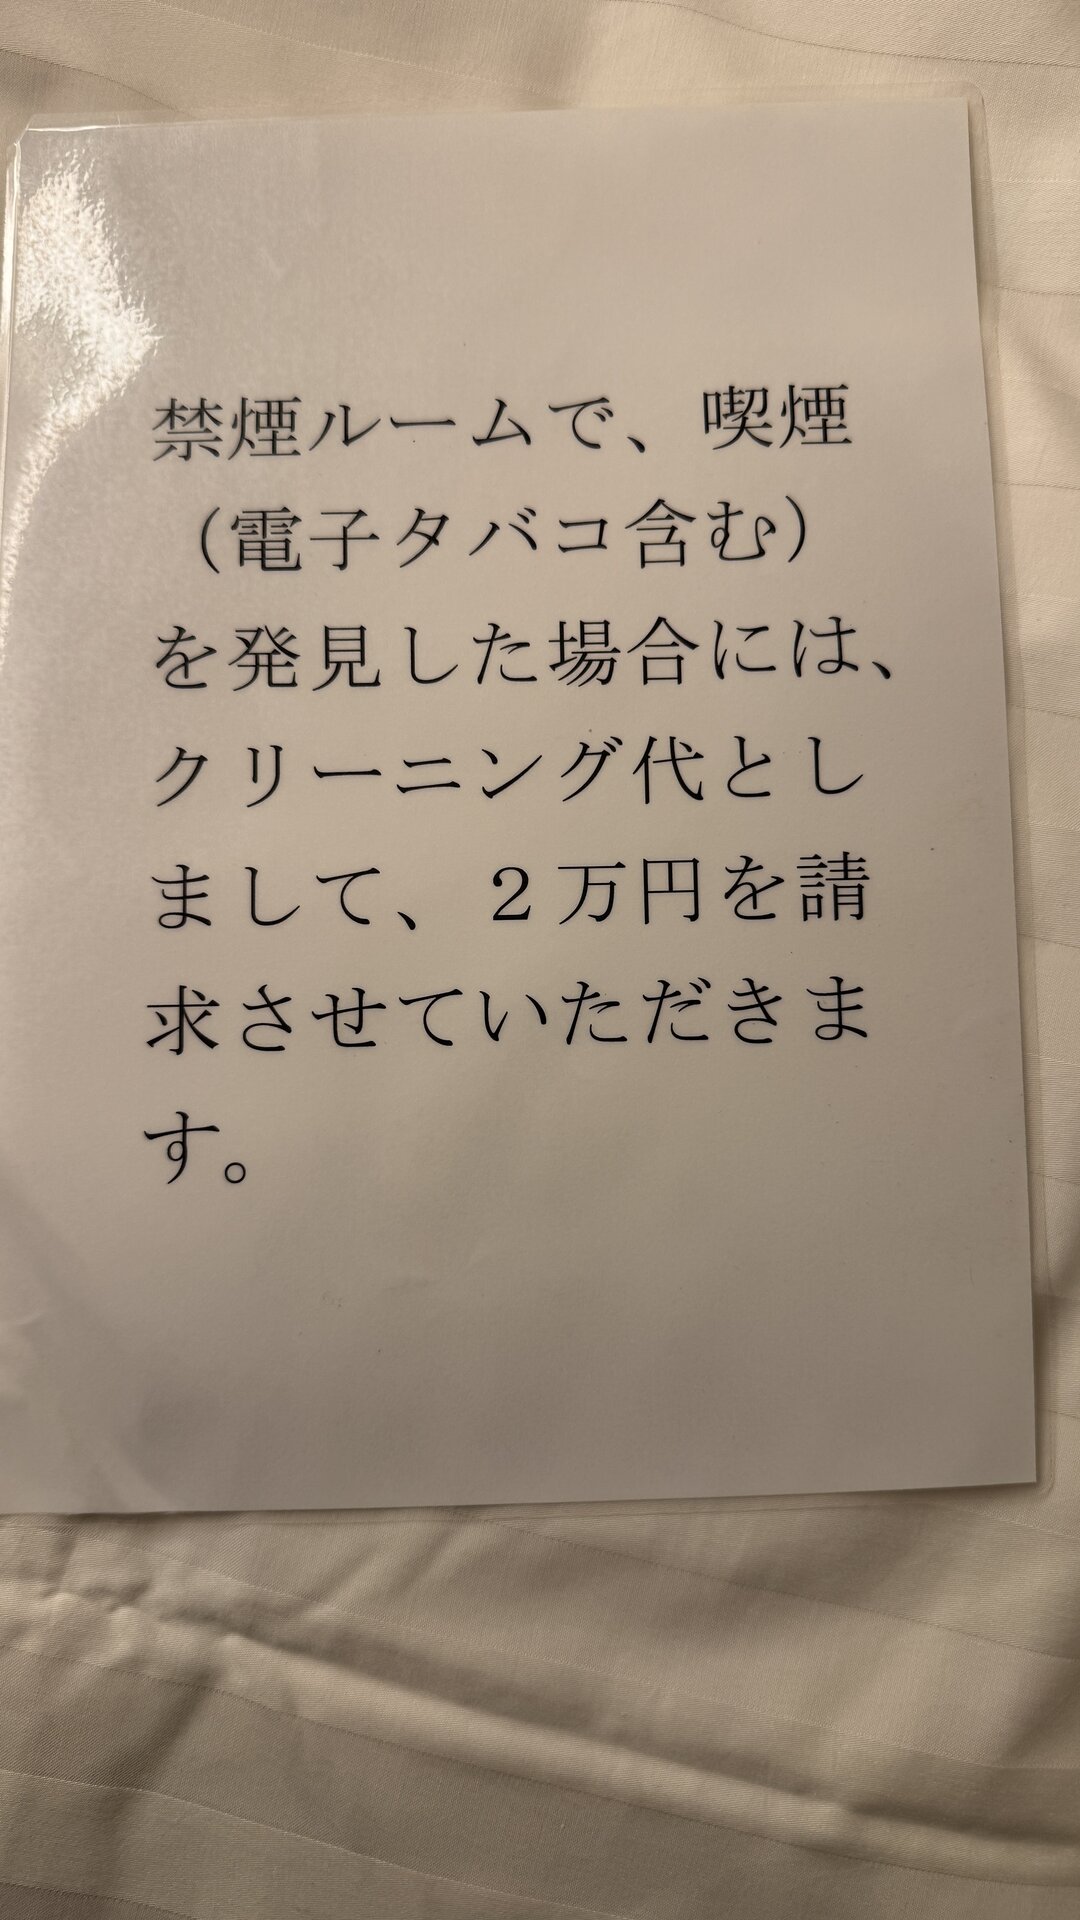 禁煙ルームで、喫煙
（電子タバコ含む）
を発見した場合には、
クリーニング代とし
まして、２万円を請
求させていただきま
す。